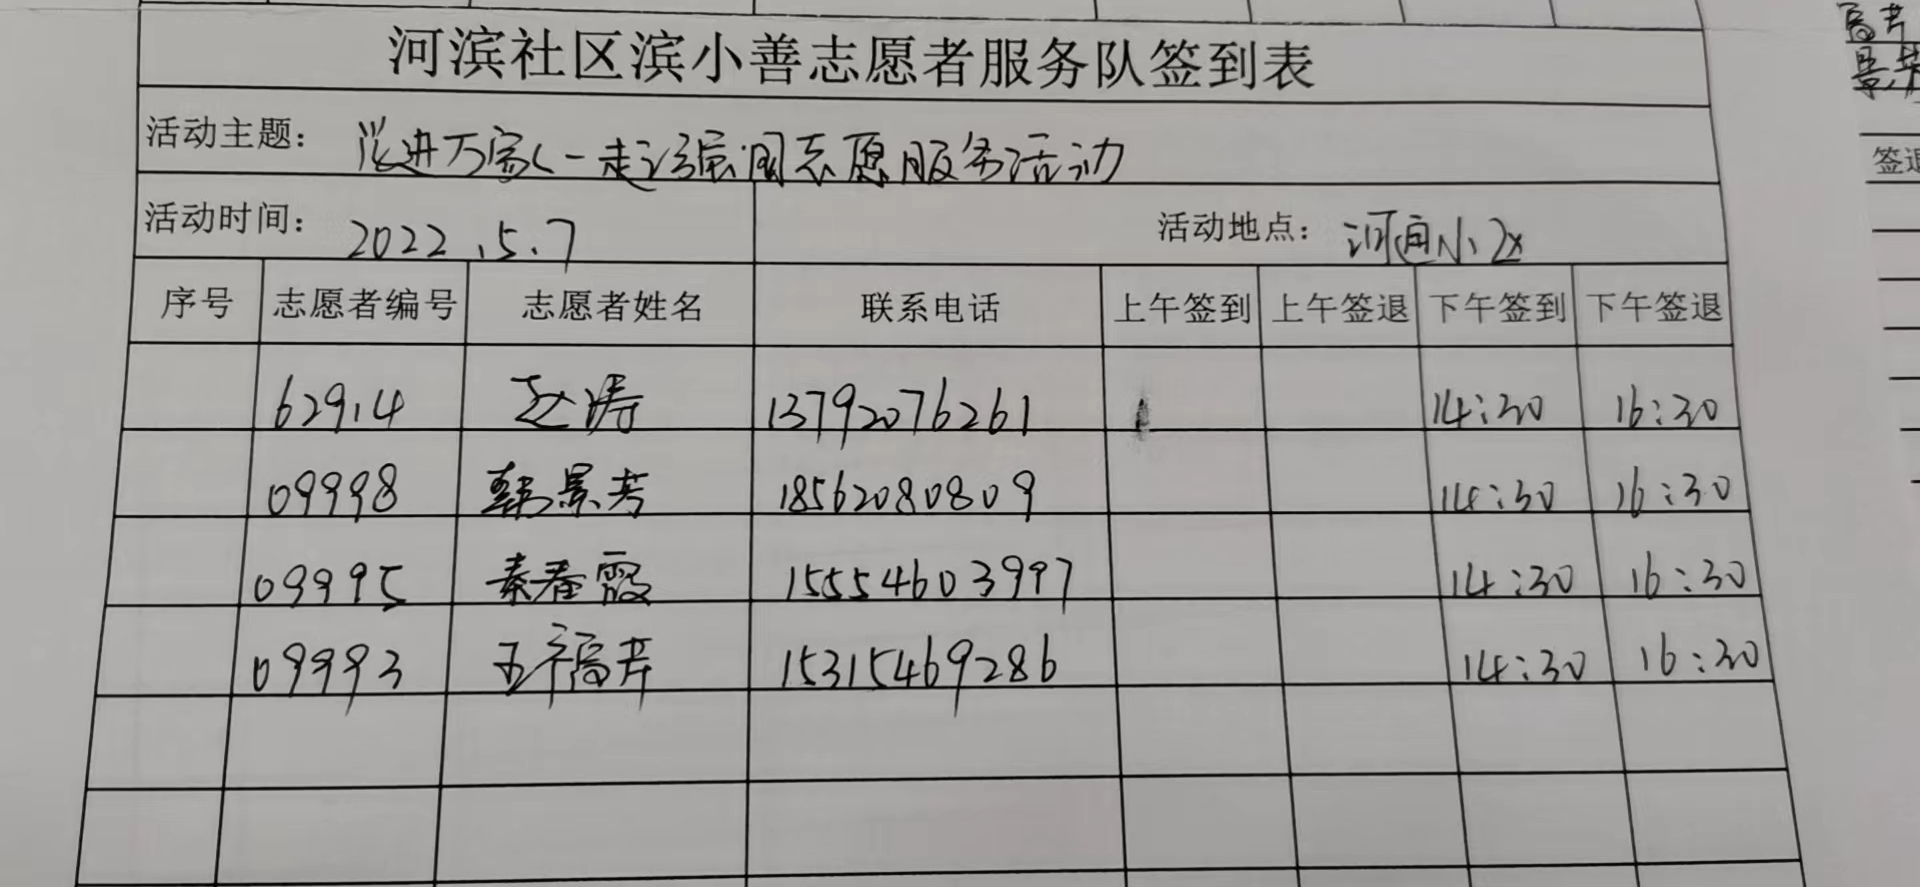 河滨社区滨小善志愿者服务队签到表
活动主题： 进万家 一起 志愿服务活动
活动时间： 2022.5.7 活动地点： 河通小区
序号 志愿者编号 志愿者姓名 联系电话 上午签到 上午签退 下午签到 下午签退
62914 赵涛 13792076261 14:30 16:30
09998 韩景芳 18562080809 14:30 16:30
09995 秦春霞 15554603997 14:30 16:30
09993 王福芹 15315469286 14:30 16:30
签退